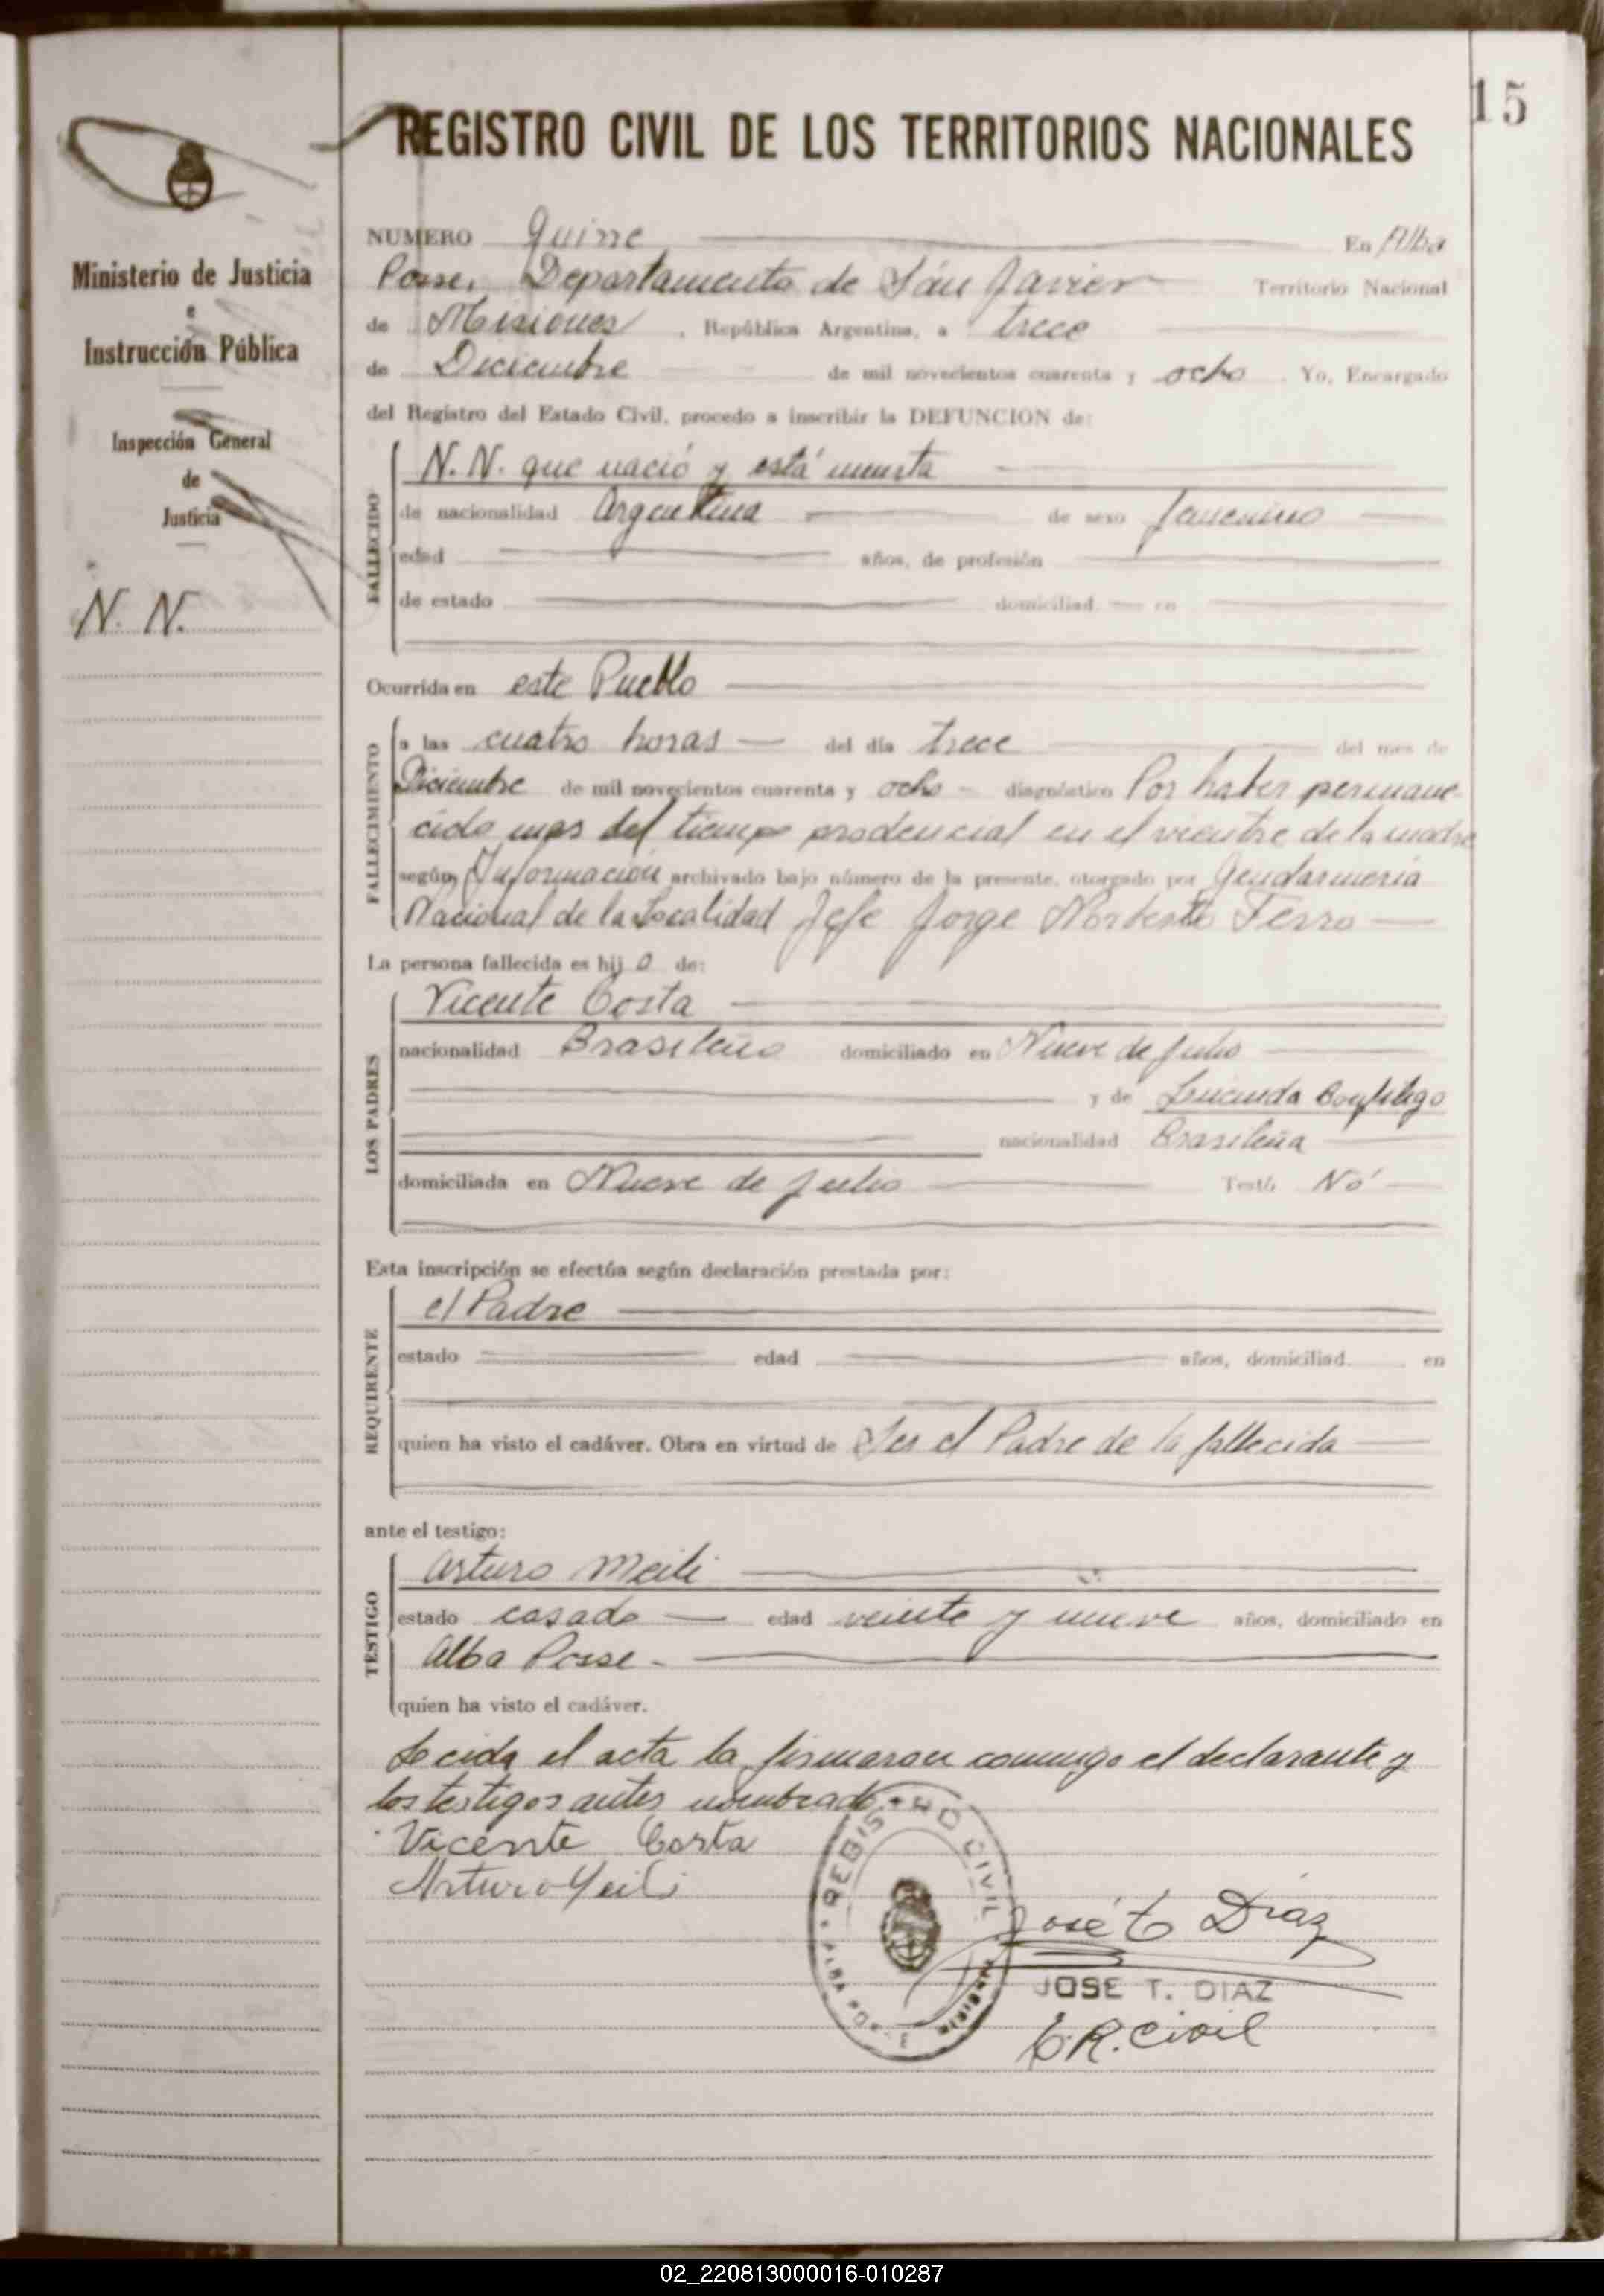 15
REGISTRO CIVIL DE LOS TERRITORIOS NACIONALES
Ministerio de Justicia
e
Instrucción Pública
Inspección General
de
Justicia
N. N.
NUMERO Quince En Alba
Posse, Departamento de Sán Javier Territorio Nacional
de Misiones, República Argentina, a trece
de Diciembre de mil novecientos cuarenta y ocho. Yo, Encargado
del Registro del Estado Civil, procedo a inscribir la DEFUNCION de:
FALLECIDO
N. N. que nació y está muerta
de nacionalidad Argentina de sexo femenino
edad años, de profesión
de estado domiciliad en
Ocurrida en este Pueblo
FALLECIMIENTO
a las cuatro horas del día trece del mes de
Diciembre de mil novecientos cuarenta y ocho diagnóstico Por haber permane-
cido mas del tiempo prodencial en el vientre de la madre
según Información archivado bajo número de la presente, otorgado por Gendarmeria
Nacional de la Localidad Jefe Jorge Norberto Ferro
La persona fallecida es hij a de:
LOS PADRES
Vicente Costa
nacionalidad Brasileño domiciliado en Nueve de Julio
y de Lucinda
nacionalidad Brasileña
domiciliada en Nueve de Julio Testó No
Esta inscripción se efectúa según declaración prestada por:
REQUIRENTE
el Padre
estado edad años, domiciliad en
quien ha visto el cadáver. Obra en virtud de Ser el Padre de la fallecida
ante el testigo:
TESTIGO
Arturo Meili
estado casado edad veinte y nueve años, domiciliado en
Alba Posse.
quien ha visto el cadáver.
Lecida el acta la firmaron conmigo el declarante y
los testigos antes nombrado
Vicente Costa
Arturo Meili
REGISTRO CIVIL
ALBA POSSE
José T Diaz
JOSE T. DIAZ
E. R. Civil
02_220813000016-010287